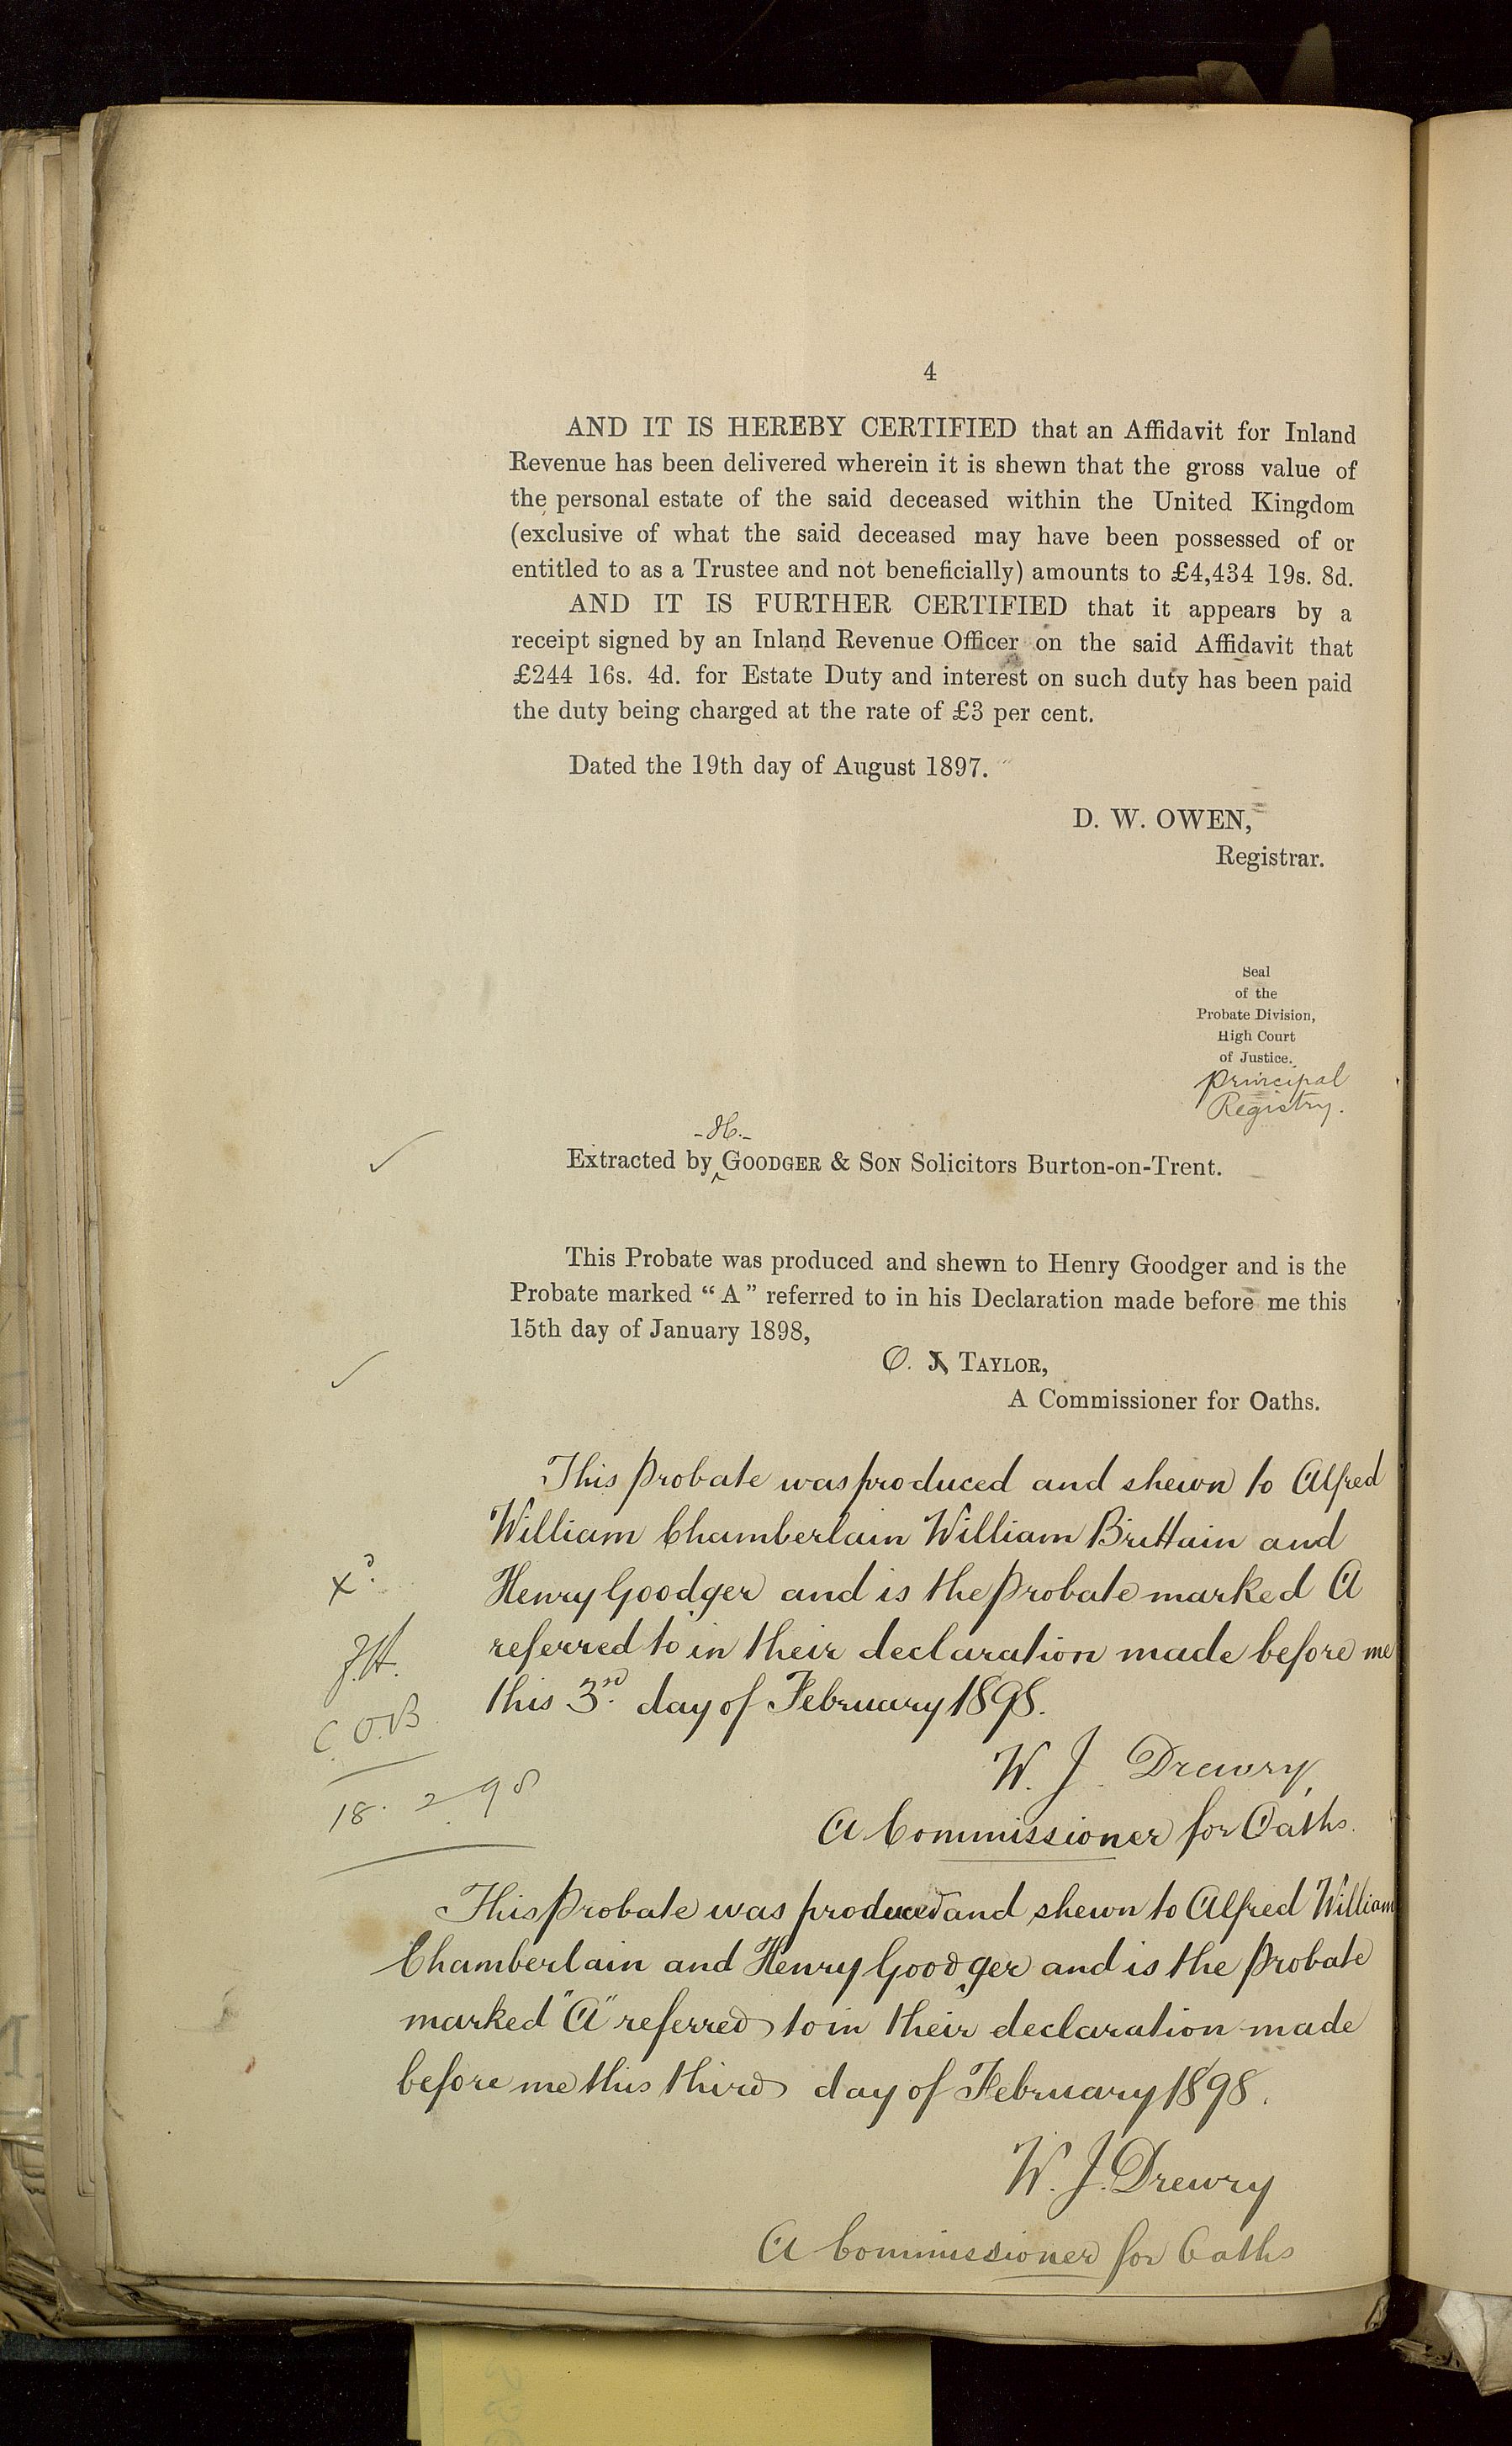 4
AND IT IS HEREBY CERTIFIED that an Affidavit for Inland
Revenue has been delivered wherein it is shewn that the gross value of
the personal estate of the said deceased within the United Kingdom
(exclusive of what the said deceased may have been possessed of or
entitled to as a Trustee and not beneficially) amounts to £4,434 19s. 8d.
AND IT IS FURTHER CERTIFIED that it appears by a
receipt signed by an Inland Revenue Officer on the said Affidavit that
£244 16s. 4d. for Estate Duty and interest on such duty has been paid
the duty being charged at the rate of £3 per cent.
Dated the 19th day of August 1897.
D. W. OWEN,
Registrar.
Seal
of the
Probate Division,
High Court
of Justice.
Principal
Registry.
-H.-
Extracted by GOODGER & SON Solicitors Burton-on-Trent.
This Probate was produced and shewn to Henry Goodger and is the
Probate marked “A” referred to in his Declaration made before me this
15th day of January 1898,
O. J TAYLOR,
A Commissioner for Oaths.
This Probate was produced and shewn to Alfred
William Chamberlain William Brittain and
Henry Goodger and is the Probate marked A
referred to in their declaration made before me
this 3rd. day of February 1898.
W. J. Drewry
A Commissioner for Oaths.
x?
J.H.
C.O.B.
18. 2 98
This Probate was produced and shewn to Alfred William
Chamberlain and Henry Goodger and is the Probate
marked "A" referred to in their declaration made
before me this third day of February 1898.
W. J. Drewry
A Commissioner for Oaths